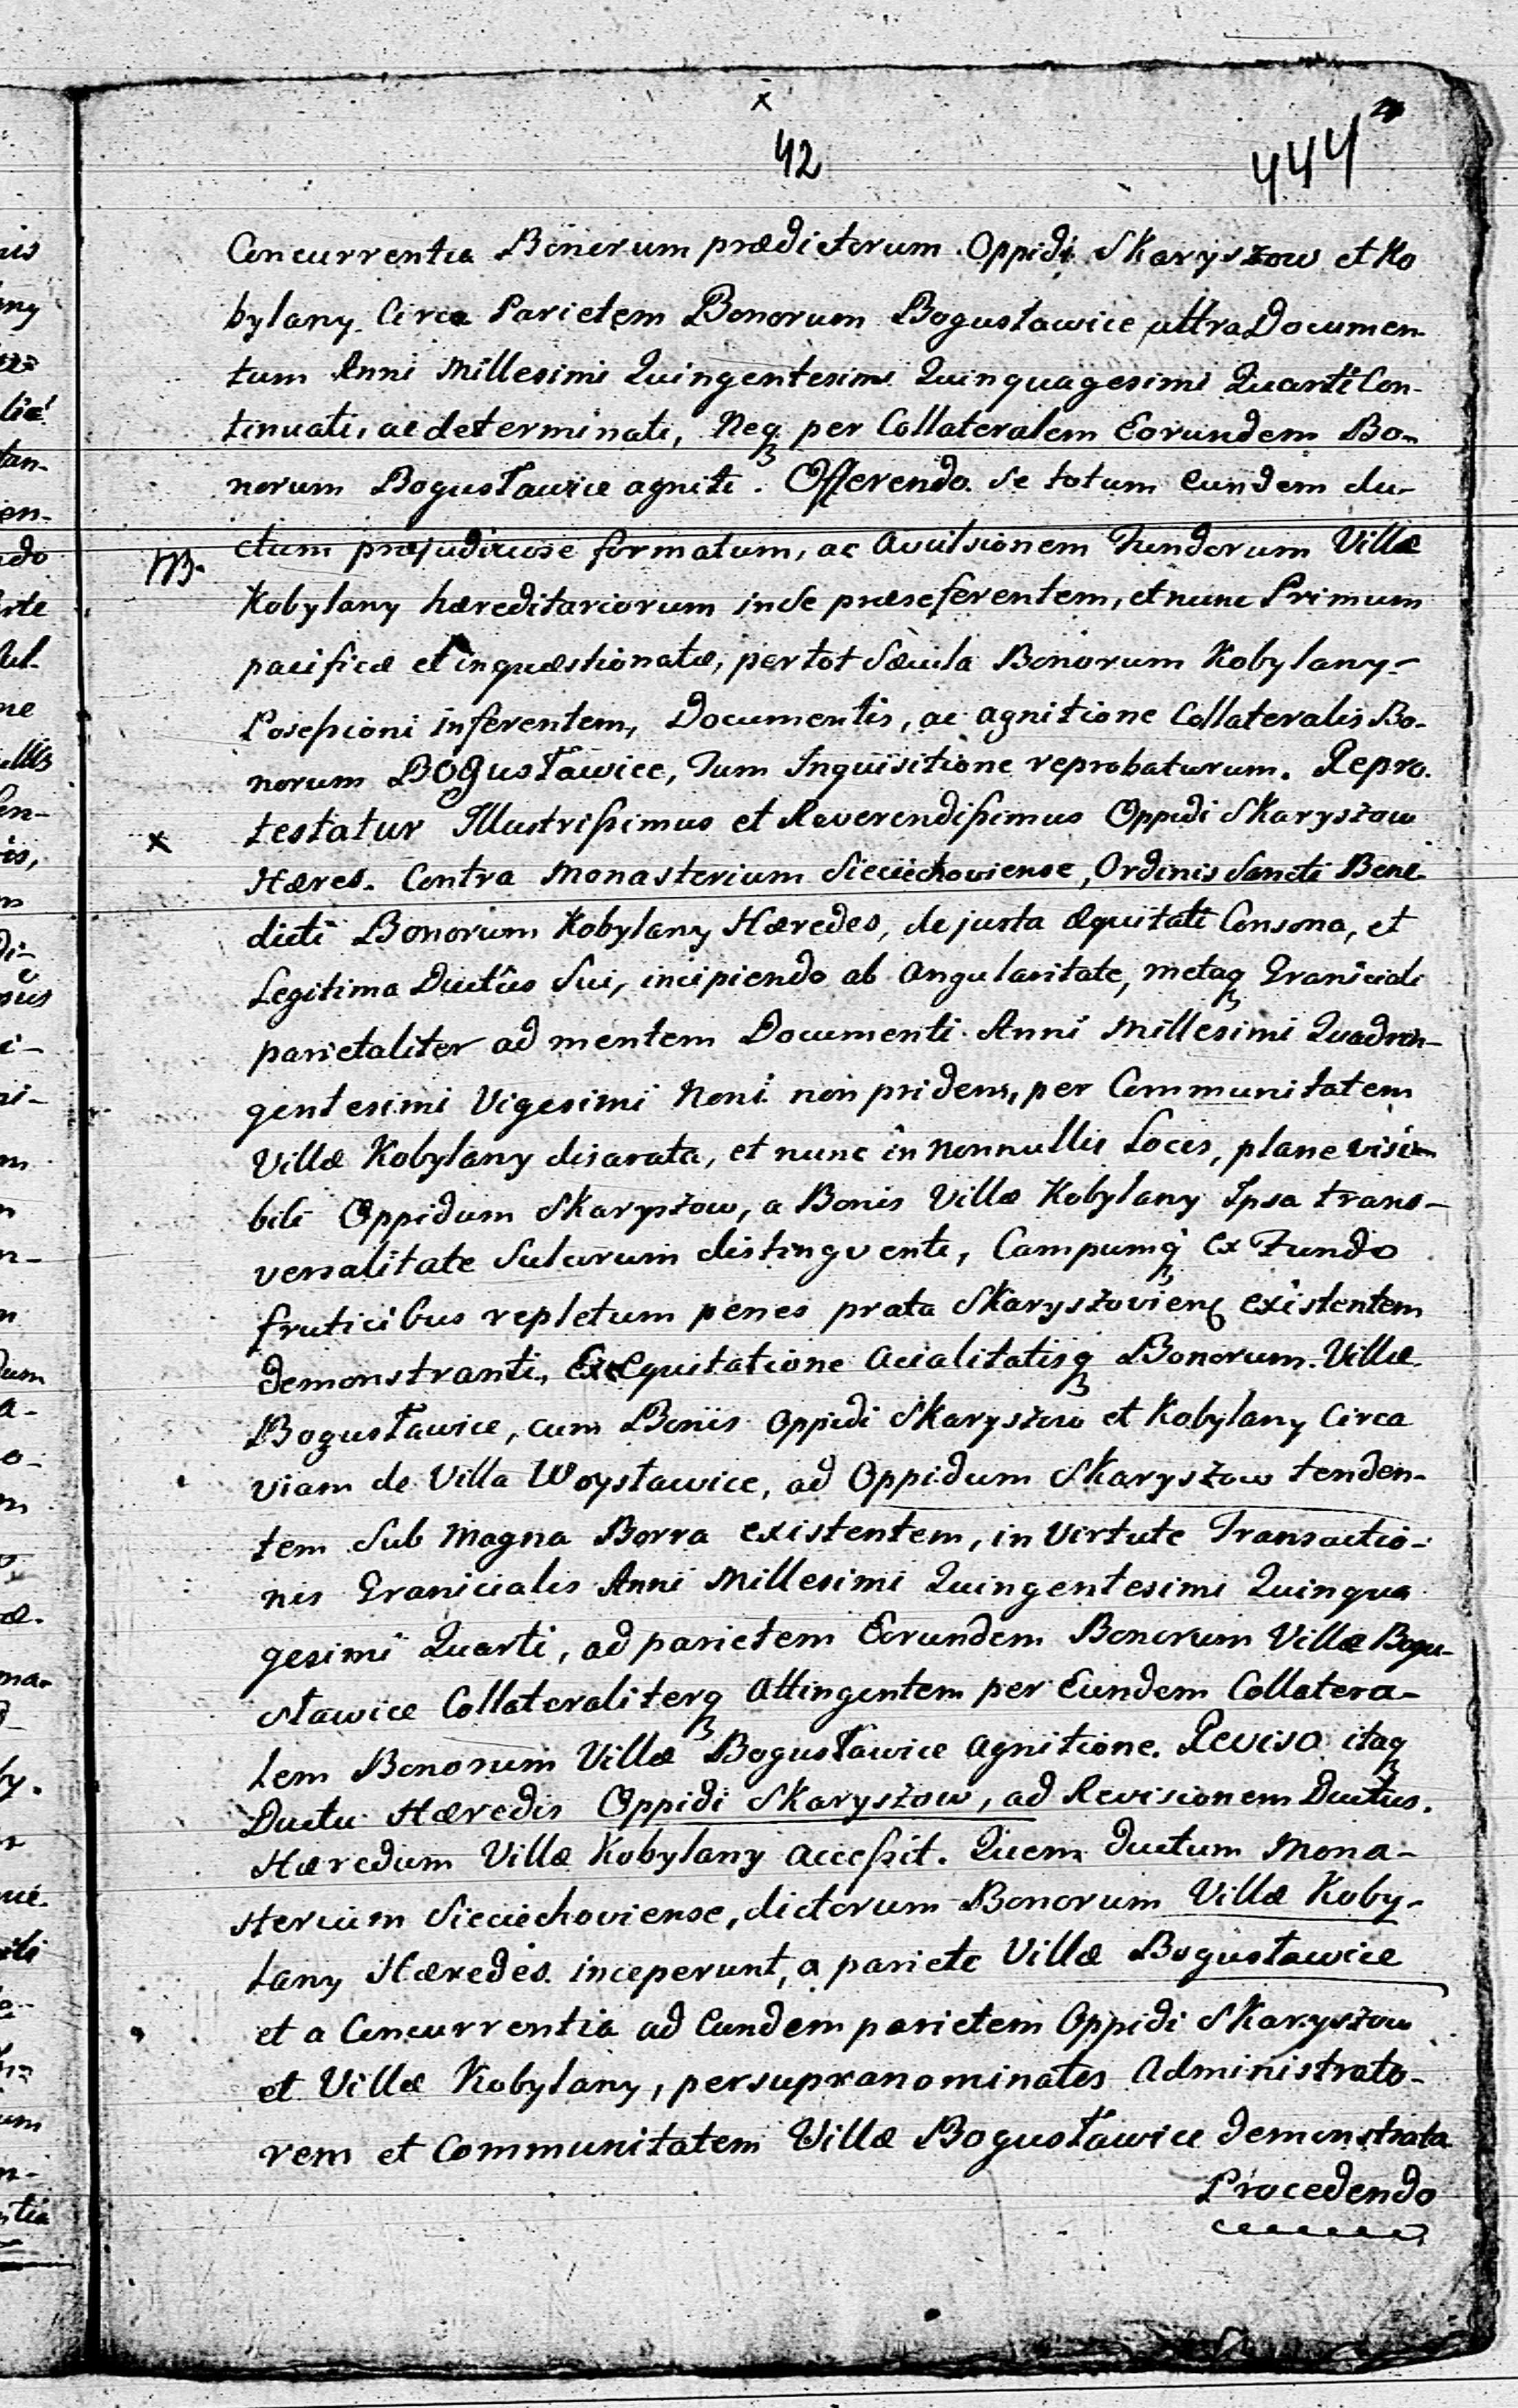 x
42
444
Concurrentia Bonorum prædictorum Oppidi Skaryszow et Ko
bylany Circa Parietem Bonorum Bogusławice ultra Documen-
tum Anni Millesimi Quingentesimi Quinquagesimi Quarti Con-
tinuati, ac determinati, Neq₃ per Collateralem Eorundem Bo-
norum Bogusławice agniti. Offerendo se totum Eundem du-
NB.
ctum præjudiciose formatum, ac Avulsionem Fundorum Villæ
Kobylany hæreditariorum in se præseferentem, et nunc Primum
pacificæ et inquæstionatæ, per tot Sæcula Bonorum Kobylany-
Possessioni inferentem, Documentis, ac agnitione Collateralis Bo-
norum Bogusławice, Tum Inquisitione reprobaturum. Repro-
x
testatur Illustrissimus et Reverendissimus Oppidi Skaryszow
Hæres. Contra Monasterium Sieciechoviense, Ordinis Sancti Bene-
dicti Bonorum Kobylany Hæredes, de justa Æquitati Consona, et
Legitima Ductûs Sui, incipiendo ab Angularitate, metaq₃ Graniciali
parietaliter ad mentem Documenti Anni Millesimi Quadrin-
gentesimi Vigesimi Noni non pridem, per Communitatem
Villæ Kobylany disarata, et nunc in nonnullis Locis, plane visi-
bili Oppidum Skaryszow, a Bonis Villæ Kobylany Ipsa trans-
versalitate Sulcorum distingvente, Campumq₃ ex Fundo
fruticibus repletum penes prata Skaryszovien existentem
demonstranti, Exequitatione Acialitatisq₃ Bonorum Villæ
Bogusławice, cum Bonis Oppidi Skaryszow et Kobylany Circa
viam de Villa Woysławice, ad Oppidum Skaryszow tenden-
tem Sub Magna Borra existentem, in Virtute Transactio-
nis Granicialis Anni Millesimi Quingentesimi Quinqua
gesimi Quarti, ad parietem Eorundem Bonorum Villæ Bogu-
sławice Collateraliterq₃ Attingentem per Eundem Collatera-
lem Bonorum Villæ Bogusławice Agnitione. Reviso itaq₃
Ductu Hæredis Oppidi Skaryszow, ad Revisionem Ductus
Hæredum Villæ Kobylany accessit. Quem ductum Mona-
sterium Sieciechoviense, dictorum Bonorum Villæ Koby-
lany Hæredes inceperunt, a pariete Villæ Bogusławice
et a Concurrentia ad Eundem parietem Oppidi Skaryszow
et Villæ Kobylany, per supranominatos Administrato-
rem et Communitatem Villæ Bogusławice demonstrata
Procedendo